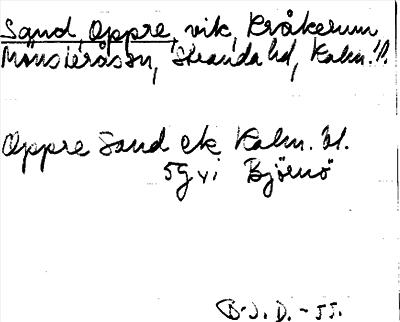 Sand, Oppre, vik, Kråkerum,
Mönsterås sn, Stranda hd, Kalm. l.
Oppre Sand ek Kalm. bl.
5g vi Björnö
B.J.D. - 55.